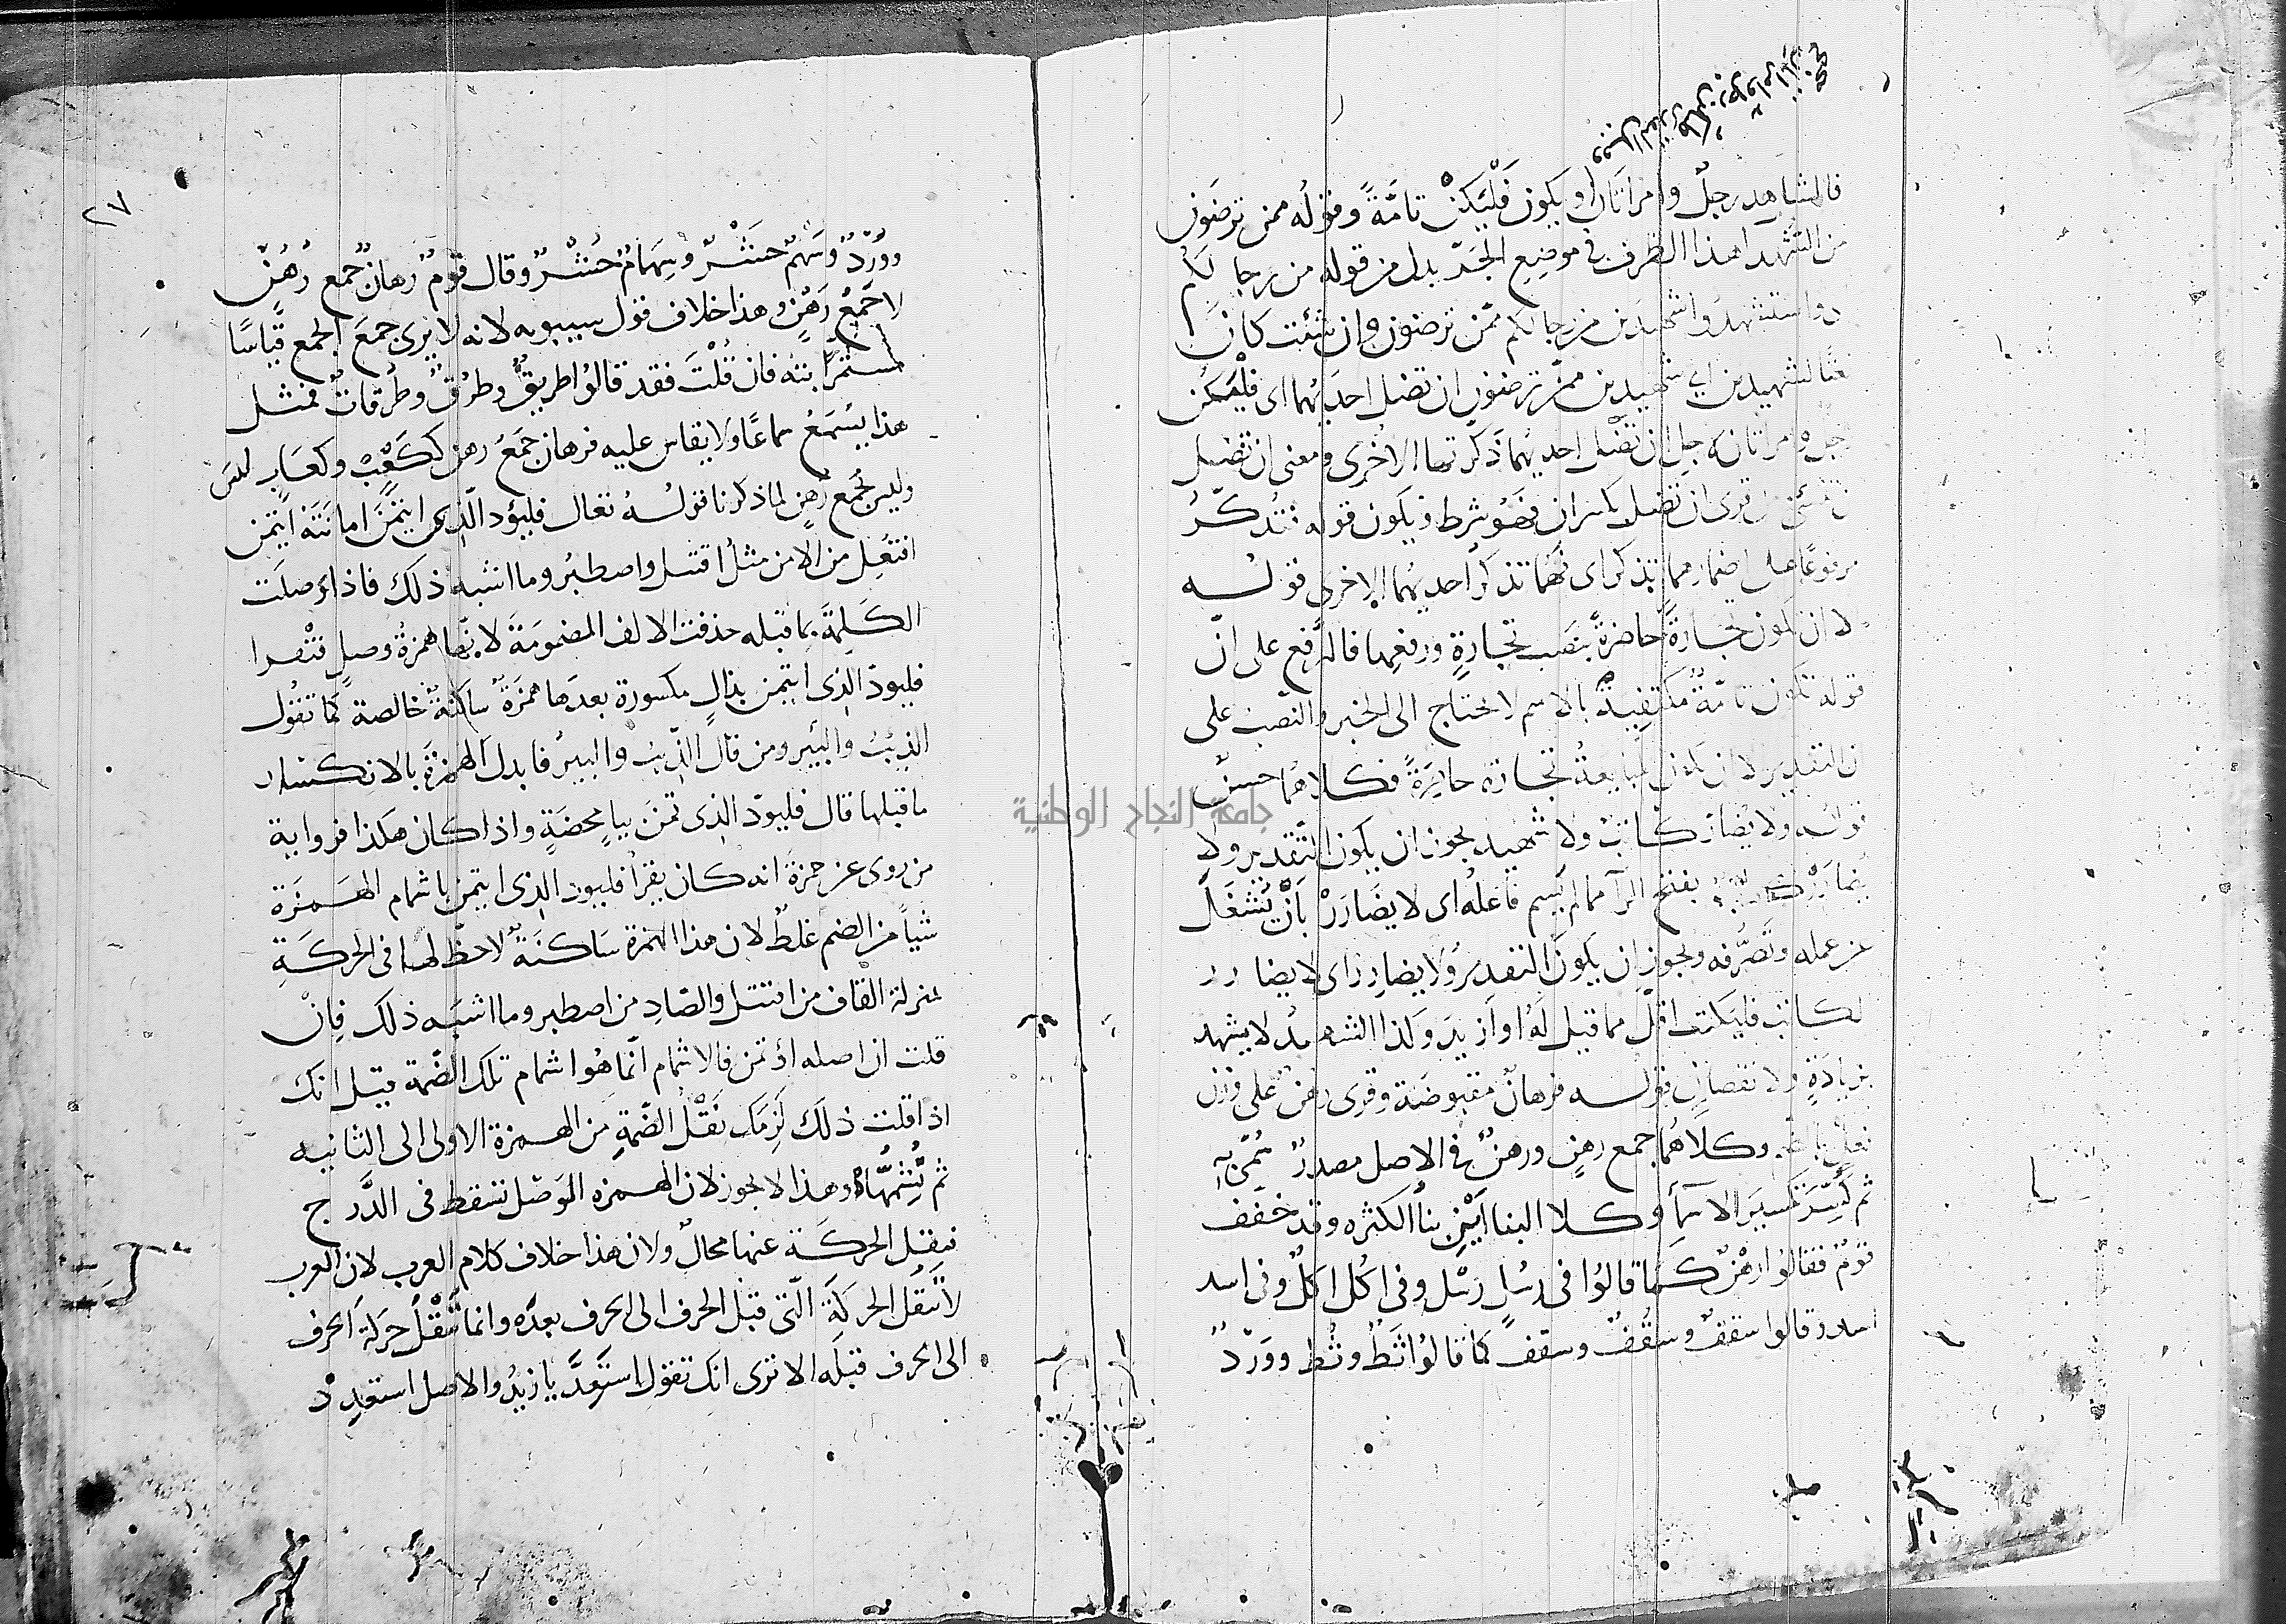 فالشاهد رجلٌ وامراتان او يكون فَلْيَكنْ تامَّةً وقوله ممن ترضَون
من الشهداء هذا الظرف في موضِع الجَرّ بدل من قوله من رجالكم
واستشهدوا شهيدين من رجالكم ممّن ترضون وان شئت كانَ
لشهيدين اي شهيدين ممن ترضون ان تضل احديهما اى فليكن
رجل وامراتان لاجل ان تضل احديهما ذكرتها الاخرى ومعنى ان تضل
قرى ان تضل بكسر ان فهو شرط ويكون قوله فتُذكّرُ
مرفوعًا على اضمار مما تذكر اى فهما تذكر احديهما الاخرى قولـــه
الا ان تكون تجارةً حاضرةً بنصب تجارةٍ ورفعِها فالرفع على انّ
قوله تكون تامّةٌ مكتفيةٌ بالاسم لا تحتاج الى الخبر والنصب على
ان التقدير الا ان تكون المبايعة تجارة حاضرةً فكلاهما حسنٌ
قولـــه ولا يضارّ كاتبٌ ولا شهيد يجوز ان يكون التقدير ولا
يضارَرْ بفتح الرآ مما لم يسم فاعله اى لا يضَارَرْ بأن يُشغَل
عن عمله وتصَرُّفه ويجوز ان يكون التقدير ولا يضارِر اى لا يضارر
الكاتب فليكتب اقلّ مما قيل لَهُ او ازيدَ وكذا الشهيدُ لا يشهد
بزيادَةٍ ولا نقصانٍ قولـــه فرهانٌ مقبوضَة وقرى رهن على وزن
وكلاهما جمع رهنٍ ورهنٌ في الاصل مصدرٌ سُمّى به
ثم كُسِّرَ تكسيرَ الاسمآ وكلا البناأين بنآ الكثره وقد خفف
قومٌ فقالوا رهْنٌ كَما قالوُا فى رسُلٍ رسْل وفى اكُل اكلٌ وفى اسد
اسدٌ وقالوا سقفٌ وسُقُفٌ وسقف كما قالوُا ثَطٌ وثُط ووَرْدٌ
٢٧
ووُرْدٌ وسَهمٌ حَشْرٌ وسِهامٌ حُشْرٌ وقال قومٌ رهانٌ جمع رُهُنٍ
لا جَمْعُ رَهْنٍ وهذا خلاف قول سيبويه لانه لا يرى جمعَ الجمع قِياسًا
مستمرًّا بته فان قُلْتَ فقد قالوُا طريقٌ وطرُقٌ وطُرقاتٌ فمثل
هذا يُسْمَعُ سماعًا ولا يقاس عليه فرهان جَمعُ رهن ككَعْبٍ وكعَابٍ
وليس بجمع رُهنٍ لما ذكرنا قولـــهُ تعالى فليؤد الّذِى ايتمن امانَتَهُ ايتمن
افتُعِل من الامن مثلُ اقتتل واصطبرُ وما اشبه ذلك فاذا وَصلَت
الكَلِمةَ بما قبله حذفت الالف المضمومَةَ لانّها همزةُ وصلٍ فتقرا
فليودّ الذِى ايتمن بذالٍ مكسورة بعدَها همزَةٌ ساكنةٌ خالصة كما تقول
الذِئبُ والبئر ومن قالَ الذِيبُ والبيرُ فابدل الهمزةَ بالانكسار
ما قبلها قال فليودّ الذِى تمنَ بياٍ محضَةٍ واذا كان هكذا فروايةُ
من روى عن حمزةَ انه كان يقرأ فليود الذِى ايتمن باشمام الهمزة
شيأ من الضم غلطٌ لان هذا الهمزة سَاكنَةٌ لا حظّ لها فى الحركَةِ
بمنزلة القاف من اقتتل والصّادِ من اصطبر وما اشبَه ذلك فإنْ
قلت ان اصله اؤتمن فالاشمام انّما هُوَ اشمام تلك الضّمة قيل انك
اذا قلت ذلكَ لَزِمَك نَقْلُ الضّمةِ مِن الهمزة الاولى الى الثانيه
ثم تُشِمُّها وهذا لا يجوز لان الهمزه الوَصْل تسقط فى الدَّرج
فنقل الحركَة عنها محالٌ ولان هذا خلاف كلام العرب لان العرب
لا تنقُل الحركَةَ الّتى قبْل الحرف الى الحرف بعدَه وانما تنْقُلُ حركة الحرف
الى الحرف قبلَه الا ترى انك تقول استَعِدَّ يا زيدُ والاصل استعدِدْ
جامعة النجاح الوطنية